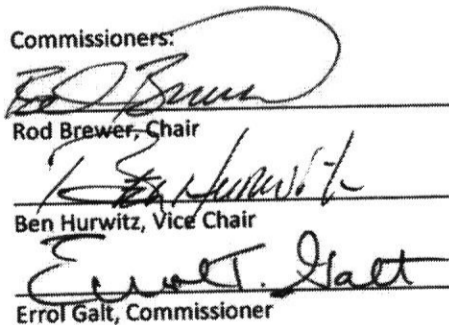 Commissioners:
Rod Brewer
Rod Brewer, Chair
Ben Hurwitz
Ben Hurwitz, Vice Chair
Errol T. Galt
Errol Galt, Commissioner